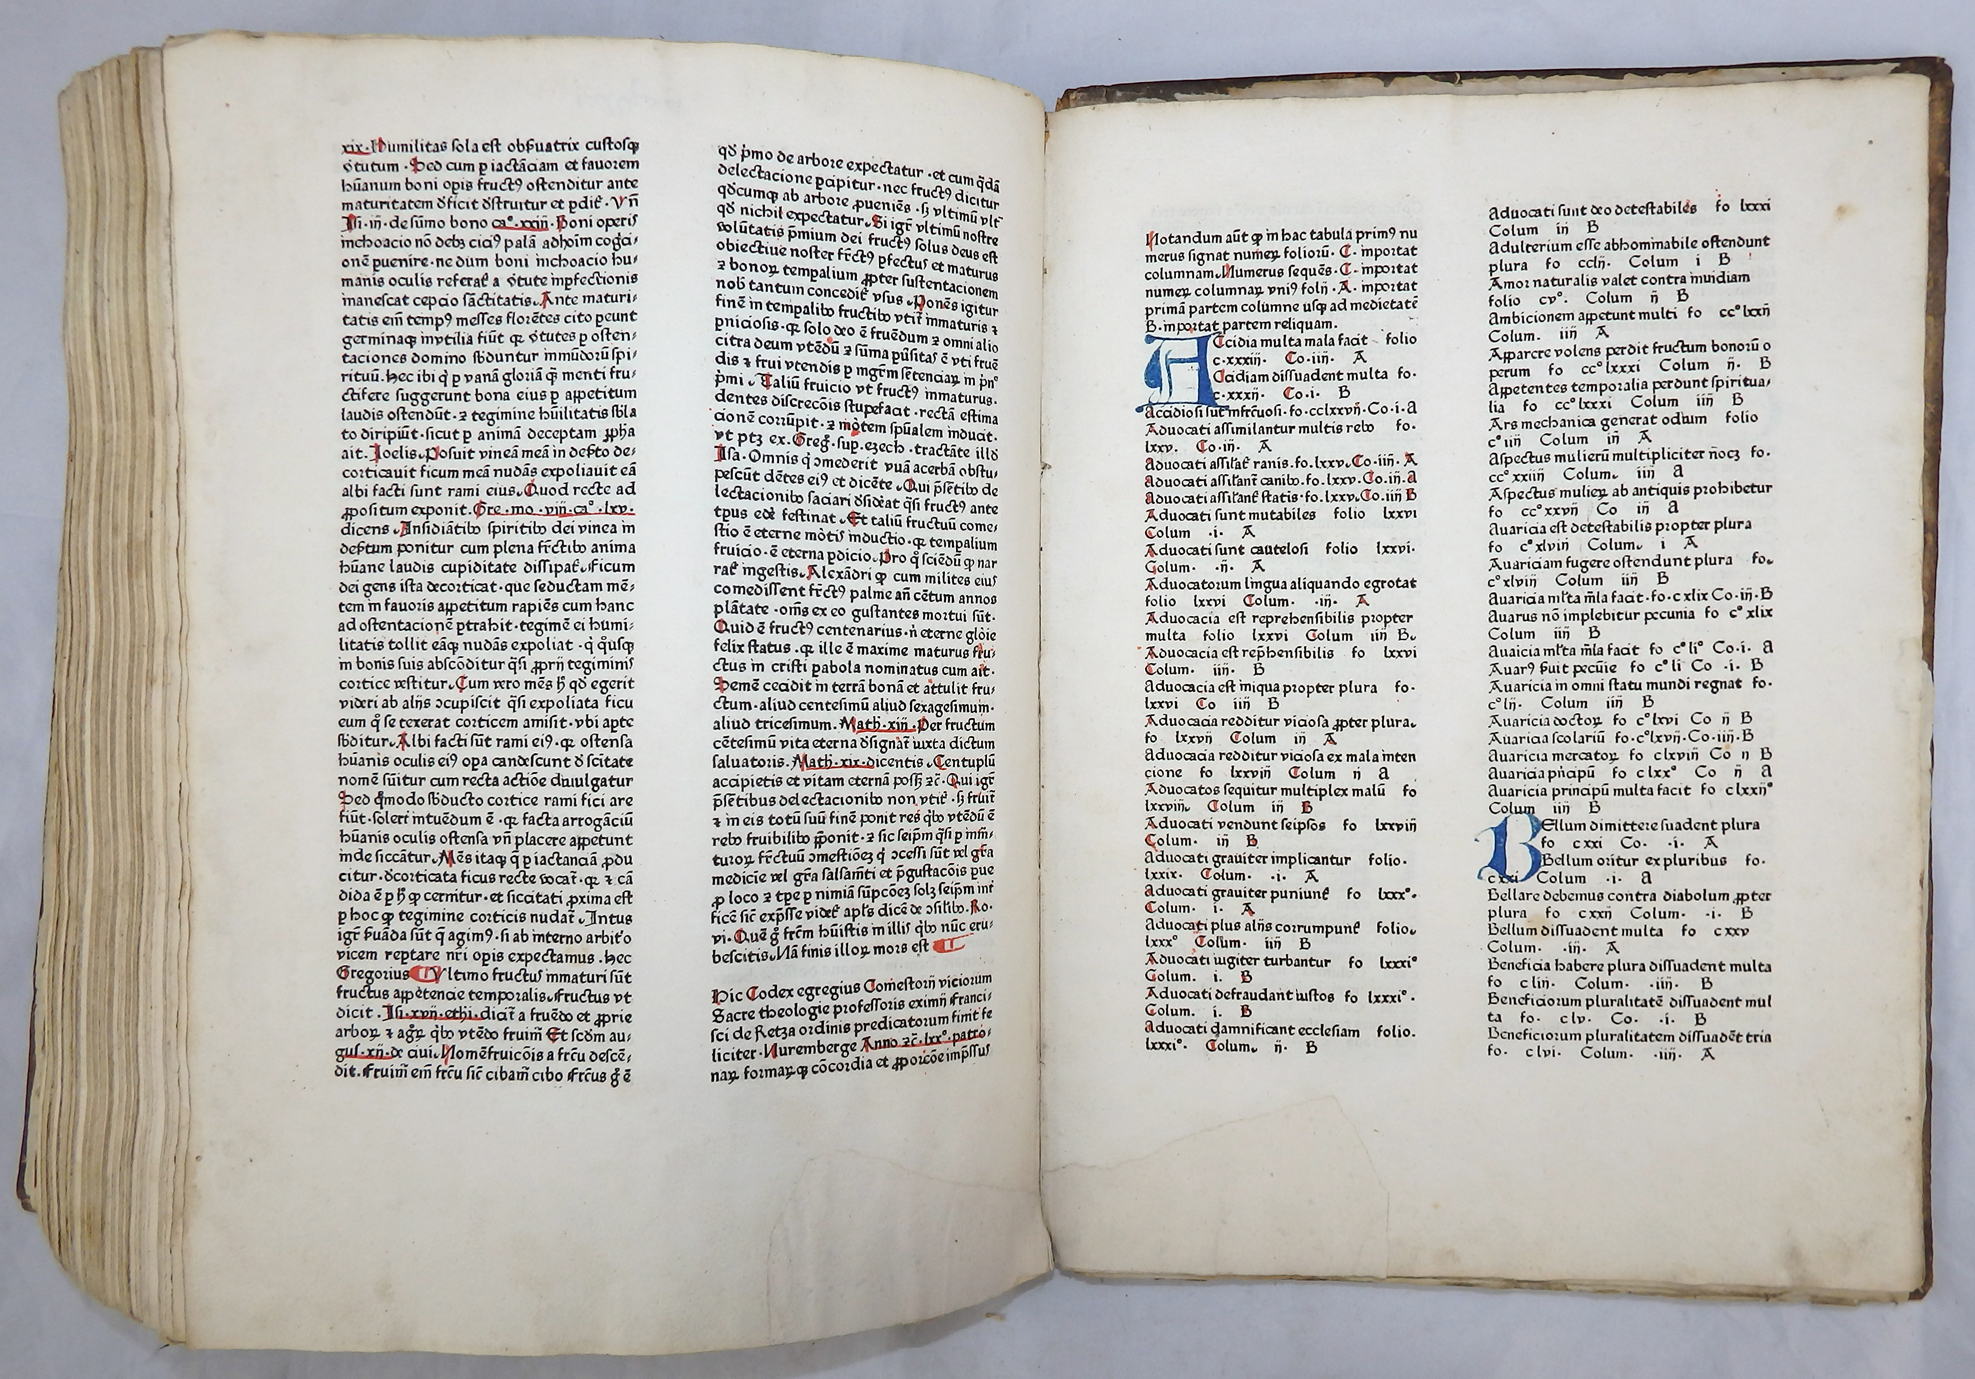 xix. Humilitas sola est obẜuatrix custosqȝ
ꝟtutum. Sed cum ꝑ iactãciam et fauorem
hũanum boni opis fructꝰ ostenditur ante
maturitatem ẟficit ẟstruitur et ꝑdit᷑. Vñ
Isi. iij. de sũmo bono caº. xxiij. Boni operis
inchoacio nõ debȝ ciciꝰ palã adhoĩm cogci⸗
onẽ ꝑuenire. ne dum boni inchoacio hu⸗
manis oculis referat᷑ a ꝟtute inꝑfectionis
inanescat cepcio sãctitatis. Ante maturi⸗
tatis em̃ tempꝰ messes florẽtes cito ꝑeunt
germinaqȝ inutilia fiũt qꝛ ꝟtutes ꝑ osten⸗
taciones domino sb̃duntur immũdorũ spi⸗
rituũ. Hec ibi q̃ ꝑ vanã gloriã q̃ menti fru⸗
ctifere suggerunt bona eius ꝑ appetitum
laudis ostendũt. ⁊ tegimine hũilitatis sb̃la
to diripiũt. sicut ꝑ animã deceptam ꝓpha
ait. Joelis. Posuit vineã meã in deẜto de⸗
corticauit ficum meã nudãs expoliauit eã
albi facti sunt rami eius. Quod recte ad
ꝓpositum exponit. Gre. mo. viij. caº. lxv.
dicens. Insidiãtibꝰ spiritibꝰ dei vinea in
deẜtum ponitur cum plena fr̃ctibꝰ anima
hũane laudis cupiditate dissipat᷑. Ficum
dei gens ista decorticat. que seductam mẽ⸗
tem in fauoris appetitum rapiẽs cum hanc
ad ostentacionẽ ꝑtrahit. tegimẽ ei humi⸗
litatis tollit eãqȝ nudãs expoliat. q̃ q̊usqȝ
in bonis suis abscõditur q̃si ꝓprij tegiminis
cortice vestitur. Cum vero mẽs hͦ qd̃ egerit
videri ab alijs ↄcupiscit q̃si expoliata ficu
eum q̃ se texerat corticem amisit. vbi apte
sb̃ditur. Albi facti sũt rami eiꝰ. qꝛ ostensa
hũanis oculis eiꝰ opa candescunt ẟ scitate
nomẽ sũitur cum recta actiõe diuulgatur
Sed q̃modo sb̃ducto cortice rami fici are
fiũt. solerẽ intuẽdum ẽ. qꝛ facta arrogãciũ
hũanis oculis ostensa vñ placere appetunt
inde siccãtur. Mẽs itaqȝ q̃ ꝑ iactanciã ꝓdu
citur. ẟcorticata ficus recte vocat᷑. qꝛ ⁊ cã
dida ẽ ꝑ hͦ ꝙ cernitur. et siccitati ꝓxima est
ꝑ hoc ꝙ tegimine corticis nudat᷑. Intus
igr̃ ẜuãda sũt q̃ agimꝰ. si ab interno arbit͛o
vicem reptare nr̃i opis expectamus. Hec
Gregorius ¶ Vltimo fructus immaturi sũt
fructus appetencie temporalis. fructus vt
dicit. Isi. xvij. ethi. dict᷑ a fruẽdo et ꝓprie
arboꝝ ⁊ agꝝ q̃bꝰ vtẽdo fruim̃ Et scd̃m au⸗
gus. xij. de ciui. Nomẽ fruicõis a fr̃cu descẽ⸗
dit. Fruim̃ em̃ fr̃cu sic̃ cibam̃ cibo fr̃cus g̃ ẽ
qd̃ p̃mo de arbore expectatur. et cum q̃dã
delectacione ꝑcipitur. nec fructꝰ dicitur
qd̃cumqȝ ab arbore ꝓueniẽs. sȝ vltimũ vlt᷑
qd̃ nichil expectatur. Si igr̃ vltimũ nostre
volũtatis p̃mium dei fructꝰ solus deus est
obiectiue noster fr̃ctꝰ ꝑfectus et maturus
⁊ bonoꝝ tempalium ꝓpter sustentacionem
nob̃ tantum concedit᷑ vsus. Ponẽs igitur
finẽ in tempalibꝰ fructibꝰ vtit᷑ immaturis ⁊
ꝑniciosis. qꝛ solo deo ẽ fruẽdum ⁊ omni alio
citra deum vtẽdũ ⁊ sũma ꝑũsitas ẽ vti fruẽ
dis ⁊ frui vtendis ꝑ mgr̃m sẽtenciaꝝ in p̃nº
p̃mi. Taliũ fruicio vt fructꝰ immaturus.
dentes discrecõis stupefacit. rectã estima
cionẽ corrũpit. ⁊ mòtem spũalem inducit.
vt ptȝ ex. Greg̃. sup. ezech. tractãte illd̃
Isa. Omnis q̃ ↄmederit vuã acerbã obstu⸗
pescũt dẽtes eiꝰ et dicẽte. Qui p̃sẽtibꝰ de
lectacionibꝰ saciari ẟsiẟeat q̃si fructꝰ ante
tpus edẽ festinat. Et taliũ fructuũ come⸗
stio ẽ eterne mòtis inductio. qꝛ tempalium
fruicio. ẽ eterna ꝑdicio. Pro q̊ sciẽdũ ꝙ nar
rat᷑ ingestis. Alexãdri ꝙ cum milites eius
comedissent fr̃ctꝰ palme añ cẽtum annos
plãtate. om̃s ex eo gustantes mortui sũt.
Quid ẽ fructꝰ centenarius. ñ eterne glõie
felix status. qꝛ ille ẽ maxime maturus fru⸗
ctus in cristi ꝑabola nominatus cum ait.
Semẽ cecidit in terrã bonã et attulit fru⸗
ctum. aliud centesimũ aliud sexagesimum.
aliud tricesimum. Math. xiij. Per fructum
cẽtesimũ vita eterna ẟsignat᷑ iuxta dictum
saluatoris. Math. xix. dicentis. Centuplũ
accipietis et vitam eternã possȝ ⁊c̃. Qui igr̃
p̃sẽtibus delectacionibꝰ non vtit᷑. sȝ fruit᷑
⁊ in eis totũ suũ finẽ ponit res q̃bꝰ vtẽdũ ẽ
rebꝰ fruibilibꝰ p̃ponit. ⁊ sic seip̃m q̃si ꝑ im̃⸗
turoꝝ fr̃ctuũ ↄmestiõeȝ q̃ ↄcessi sũt vel gr̃a
medicie vel gr̃a salsam̃ti et p̃gustacõis pue
ꝓ loco ⁊ tꝑe ꝑ nimiã sũpcõeȝ solȝ seip̃m int᷑
ficẽ sic̃ exp̃sse videt᷑ apl̃s dicẽ de ↄsilibꝰ. Ro.
vi. Quẽ g̃ fr̃cm hũistis in illis q̃bꝰ nũc eru⸗
bescitis. Nã finis illoꝝ mors est ¶
Hic Codex egregius Comestorij viciorum
Sacre theologie professoris eximij Franci⸗
sci de Retza ordinis predicatorum finit fe
liciter. Nuremberge Anno ⁊c̃. lxxº. patro⸗
naꝝ formaꝝqȝ cõcordia et ꝓporcõe imp̃ssus
Notandum aũt ꝙ in hac tabula primꝰ nu
merus signat numeꝝ foliorũ. C. importat
columnam. Numerus sequẽs. C. importat
numeꝝ columnaꝝ vniꝰ folij. A. importat
primã partem columne usqȝ ad medietatẽ
B. importat partem reliquam.
ACcidia multa mala facit folio
c.xxxiij. Co. iiij. A
Accidiam dissuadent multa fo.
c.xxxij. Co. i. B
Accidiosi sũt infr̃cuosi. fo. cclxxvij. Co. i. A
Aduocati assimilantur multis rebꝰ fo.
lxxv. Co. iij. A
Aduocati assilat᷑ ranis. fo. lxxv. Co. iiij. A
Aduocati assilant᷑ canibꝰ. fo. lxxv. Co. iij. A
Aduocati assilant᷑ statis. fo. lxxv. Co. iiij B
Aduocati sunt mutabiles folio lxxvi
Colum .i. A
Aduocati sunt cautelosi folio lxxvi.
Colum. .ij. A
Aduocatorum lingua aliquando egrotat
folio lxxvi Colum. .iij. A
Aduocacia est reprehensibilis propter
multa folio lxxvi Colum iiij B.
Aduocacia est rep̃hensibilis fo lxxvi
Colum. iiij. B
Aduocacia est iniqua propter plura fo.
lxxvi Co iiij B
Aduocacia redditur viciosa ꝓpter plura.
fo lxxvij Colum iij A
Aduocacia redditur viciosa ex mala inten
cione fo lxxviij Colum ij A
Aduocatos sequitur multiplex malũ fo
lxxviij. Colum iij B
Aduocati vendunt seipsos fo lxxviij
Colum. iij B
Aduocati grauiter implicantur folio.
lxxix. Colum. .i. A
Aduocati grauiter puniunt᷑ fo lxxxº.
Colum. i. A
Aduocati plus alijs corrumpunt᷑ folio.
lxxxº Colum. iiij B
Aduocati iugiter turbantur fo lxxxiº
Colum. i. B
Aduocati defraudant iustos fo lxxxiº.
Colum. i. B
Aduocati damnificant ecclesiam folio.
lxxxiº. Colum. ij. B
Aduocati sunt deo detestabiles fo lxxxi
Colum iij B
Adulterium esse abhominabile ostendunt
plura fo cclij. Colum i B
Amor naturalis valet contra inuidiam
folio cvº. Colum ij B
Ambicionem appetunt multi fo ccºlxxij
Colum. iiij A
Apparere volens perdit fructum bonorũ o
perum fo ccºlxxxi Colum ij. B
Appetentes temporalia perdunt spiritua⸗
lia fo ccºlxxxi Colum iiij B
Ars mechanica generat odium folio
cºiiij Colum iij A
Aspectus mulierũ multipliciter nocȝ fo.
ccºxxiiij Colum. iiij A
Aspectus mulieꝝ ab antiquis prohibetur
fo ccºxxvij Co iij A
Auaricia est detestabilis propter plura
fo cºxlviij Colum. i A
Auariciam fugere ostendunt plura fo.
cºxlviij Colum iiij B
Auaricia ml̃ta m̃la facit. fo. c xlix Co. iij. B
Auarus nõ implebitur pecunia fo cºxlix
Colum iiij B
Auaricia ml̃ta m̃la facit fo cºliº Co. i. A
Auarꝰ ẜuit pecũie fo cºli Co .i. B
Auaricia in omni statu mundi regnat fo.
cºlij. Colum iiij B
Auaricia doctoꝝ fo cºlxvi Co ij B
Auaricia scolariũ fo. cºlxvij. Co. iij. B
Auaricia mercatoꝝ fo clxviij Co ij B
Auaricia p̃ncipũ fo clxxº Co ij A
Auaricia principũ multa facit fo clxxijº
Colum iiij B
BEllum dimittere suadent plura
fo cxxi Co. .i. A
Bellum oritur ex pluribus fo.
cxxi Colum .i. A
Bellare debemus contra diabolum ꝓpter
plura fo cxxij Colum. .i. B
Bellum dissuadent multa fo cxxv
Colum. .iij. A
Beneficia habere plura dissuadent multa
fo cliij. Colum. .iiij. B
Beneficiorum pluralitatẽ dissuadent mul
ta fo. clv. Co. .i. B
Beneficiorum pluralitatem dissuadẽt tria
fo. clvi. Colum. .iiij. A